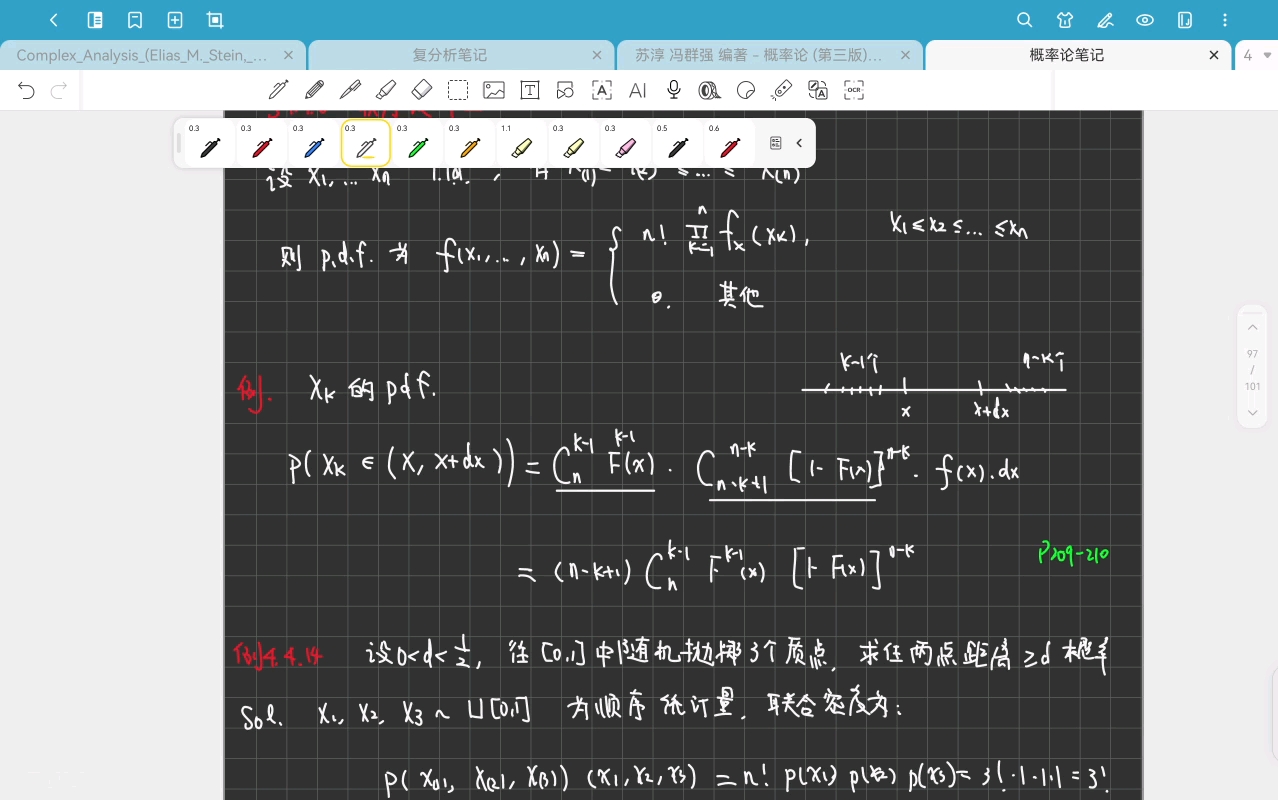 Complex_Analysis_(Elias_M._Stein,_...
复分析笔记
苏淳 冯群强 编著 - 概率论 (第三版)...
概率论笔记
4
0.3 0.3 0.3 0.3 0.3 0.3 1.1 0.3 0.3 0.5 0.6
设 X₁, … Xₙ i.i.d. ,
则 p.d.f. 为 f(x₁, …, xₙ) = { n! ∏ₖ₌₁ⁿ fₓ(xₖ), x₁ ≤ x₂ ≤ … ≤ xₙ
0. 其他
k-1个 n-k个
例. Xₖ 的 pdf.
x x+dx
P( Xₖ ∈ (x, x+dx)) = Cₙᵏ⁻¹ Fᵏ⁻¹(x) · Cₙ₋ₖ₊₁ⁿ⁻ᵏ [1- F(x)]ⁿ⁻ᵏ · f(x). dx
= (n-k+1) Cₙᵏ⁻¹ Fᵏ⁻¹(x) [1- F(x)]ⁿ⁻ᵏ
P209-210
例4.4.14 设 0<d<1/2, 往 [0,1] 中随机抛掷3个质点. 求任两点距离 ≥d 概率
Sol. X₁, X₂, X₃ ~ U[0,1] 为顺序统计量. 联合密度为:
P( X₍₁₎, X₍₂₎, X₍₃₎) (x₁, x₂, x₃) = n! p(x₁) p(x₂) p(x₃) = 3! ·1·1·1 = 3!
97
/
101